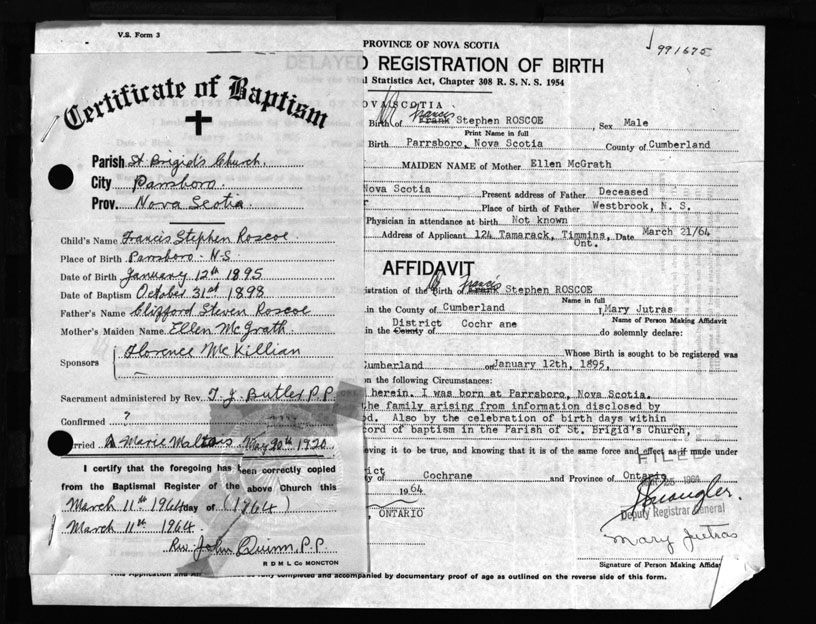 V.S. Form 3
991675
PROVINCE OF NOVA SCOTIA
DELAYED REGISTRATION OF BIRTH
l Statistics Act, Chapter 308 R. S. N. S. 1954
OVA SCOTIA
Francis
Birth of Frank Stephen ROSCOE Sex Male
Print Name in full
Birth Parrsboro, Nova Scotia County of Cumberland
MAIDEN NAME of Mother Ellen McGrath
Nova Scotia Present address of Father Deceased
Place of birth of Father Westbrook, N. S.
Physician in attendance at birth Not known
Address of Applicant 124 Tamarack, Timmins, Date March 21/64
Ont.
AFFIDAVIT
Francis
istration of the Birth Frank Stephen ROSCOE
Name in full
in the County of Cumberland I, Mary Jutras
Name of Person Making Affidavit
District
in the County Cochr ane do solemnly declare:
Whose Birth is sought to be registered was
Cumberland on January 12th, 1895,
on the following Circumstances:
herein. I was born at Parrsboro, Nova Scotia.
the family arising from information disclosed by
d. Also by the celebration of birth days within
cord of baptism in the Parish of St. Brigid's Church,
eving it to be true, and knowing that it is of the same force and effect as if made under
FILED
rict
y of Cochrane and Province of Ontario
1964
, ONTARIO
Deputy Registrar General
Mary Jutras
Signature of Person Making Affidav
This Application and Aff be fully completed and accompanied by documentary proof of age as outlined on the reverse side of this form.
Certificate of Baptism
Parish St Brigid's Church
City Parrsboro.
Prov. Nova Scotia
Child's Name Francis Stephen Roscoe
Place of Birth Parrsboro - N.S.
Date of Birth January 12th 1895
Date of Baptism October 31st 1898
Father's Name Clifford Steven Roscoe
Mother's Maiden Name Ellen McGrath
Sponsors Florence McKillian
Sacrament administered by Rev. T. J. Butler P.P.
Confirmed ?
rried to Marie Maltais May 20th 1920
I certify that the foregoing has been correctly copied
from the Baptismal Register of the above Church this
March 11th 1964 day of (1964)
March 11th 1964.
Rev. John Quinn, P.P.
R D M L Co MONCTON